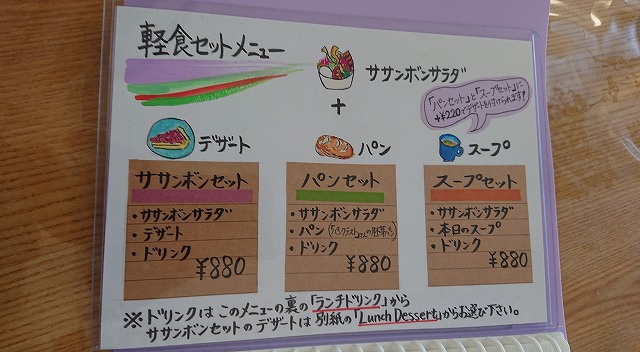 軽食セットメニュー
ササンボンサラダ
+
「パンセット」と「スープセット」に
+¥220でデザートを付けられます!
デザート
パン
スープ
ササンボンセット
・ササンボンサラダ
・デザート
・ドリンク
¥880
パンセット
・ササンボンサラダ
・パン
・ドリンク
¥880
スープセット
・ササンボンサラダ
・本日のスープ
・ドリンク
¥880
※ドリンクはこのメニューの裏の「ランチドリンク」から
ササンボンセットのデザートは別紙の「Lunch Dessert」からお選び下さい。